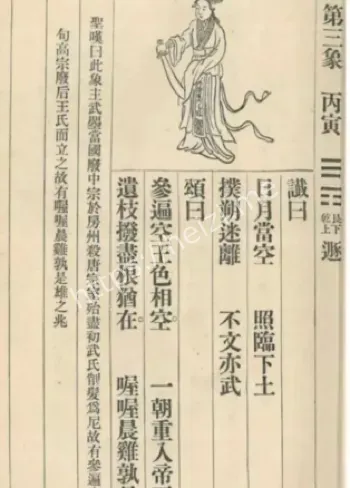 第三象 丙寅 ䷠ 艮下乾上 遯
讖曰
日月當空 照臨下土
撲朔迷離 不文亦武
頌曰
參遍空王色相空 一朝重入帝
遺枝撥盡根猶在 喔喔晨雞孰
聖嘆曰此象主武曌當國廢中宗於房州殺唐宗室殆盡初武氏削髮爲尼故有參遍
句高宗廢后王氏而立之故有喔喔晨雞孰是雄之兆